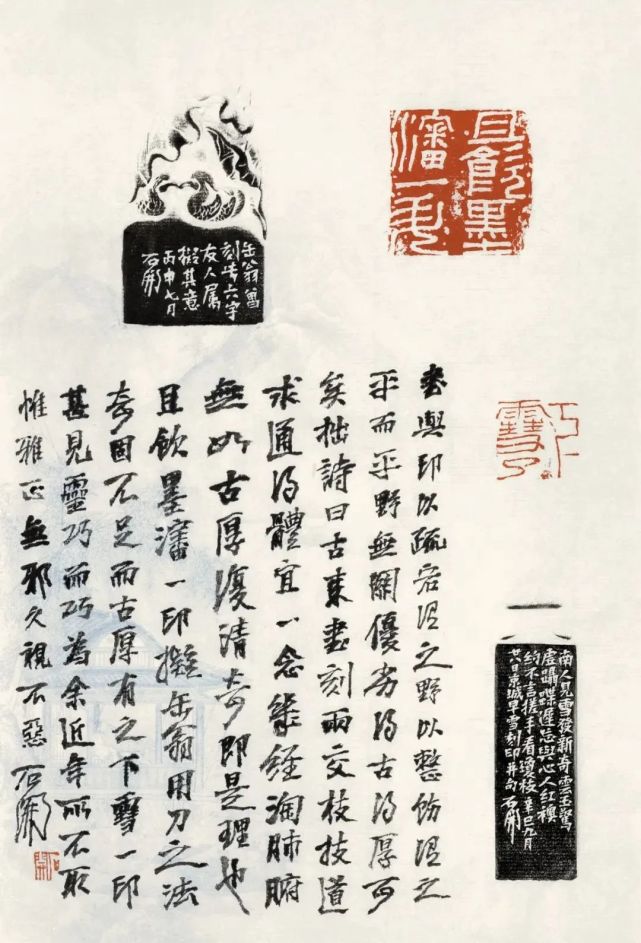 且飲墨
瀋一升
缶翁曾
刻此六字
友人屬
擬其意
丙申七月
石開
書與印以疏宕謂之野以整飭謂之
平而平野無關優劣得古得厚可
矣拙詩曰古來書刻兩交枝技道
求通得體宜一念幾經淘肺腑
無如古厚復清奇即是理也
且飲墨瀋一印擬缶翁用刀之法
奇固不足而古厚有之下雪一印
甚見靈巧而巧為余近年所不取
惟雅正無邪久視不惡石開
石開
下雪
南人見雪發新奇雲玉鸞
虛躡蹀遲忘與心人紅襖
約不言搓手看瓊枝辛巳九月
廿八日京城早雪刻印並句石開